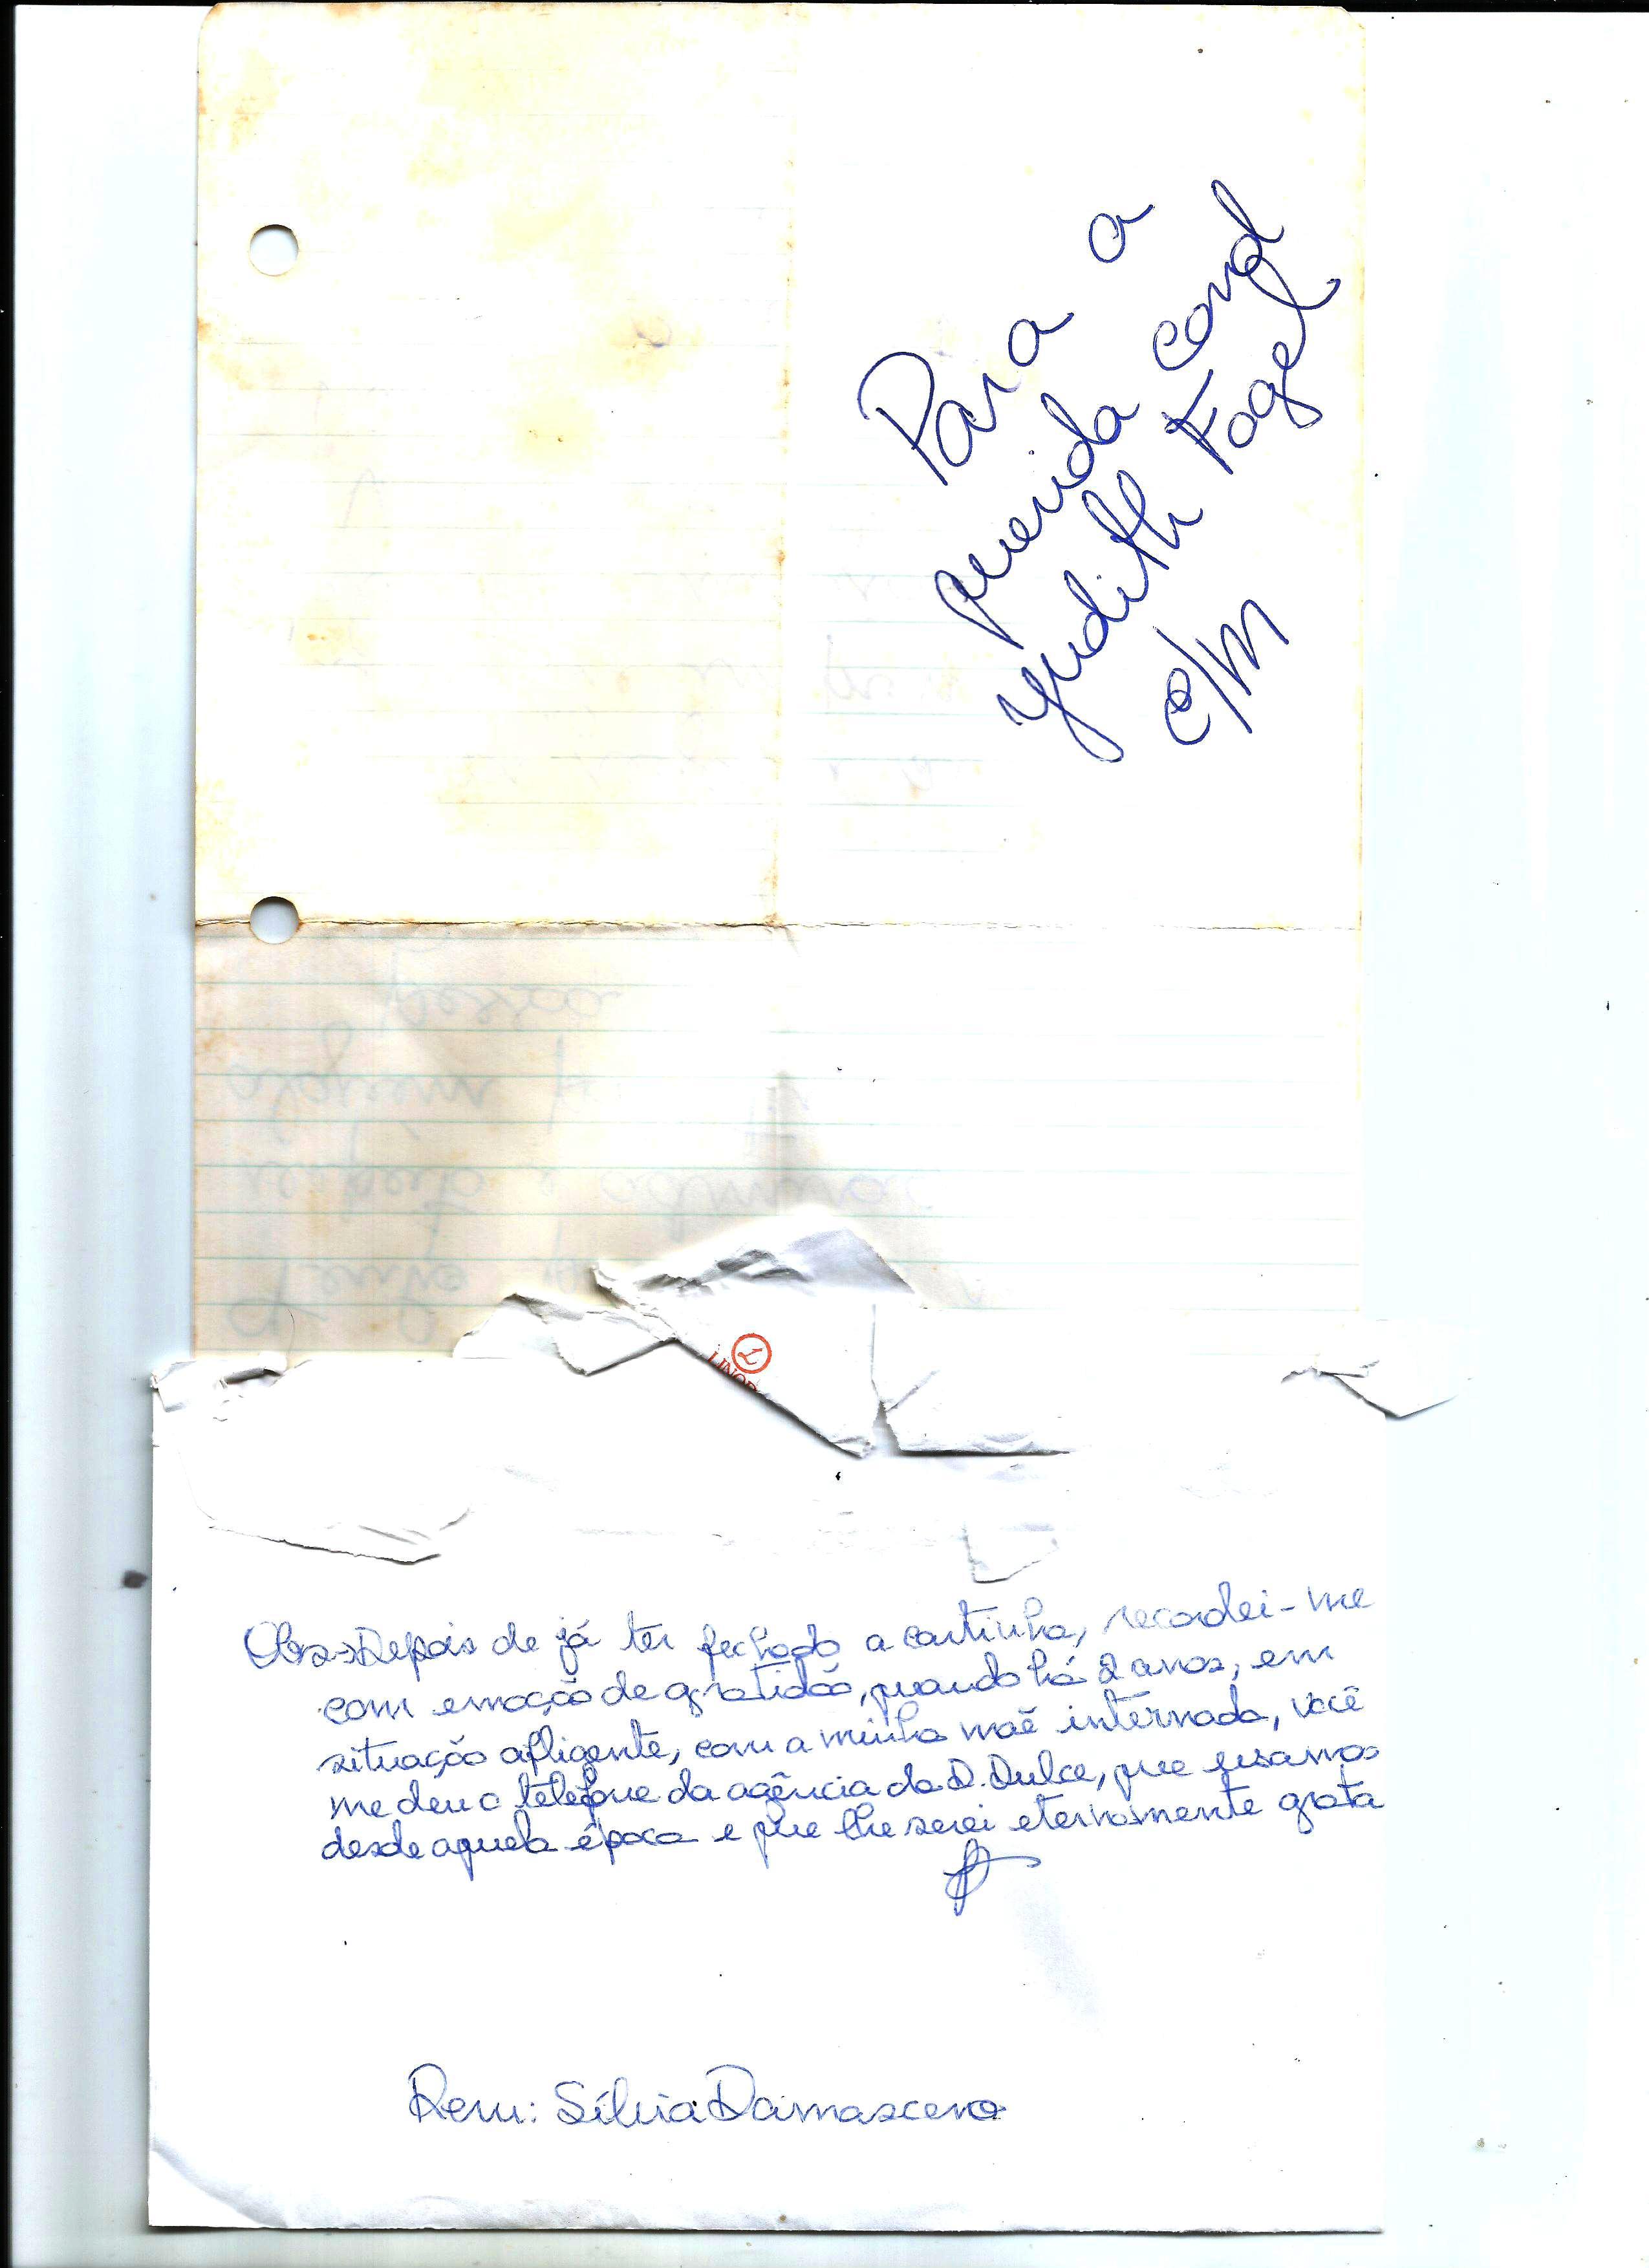 Para a
querida cord
Yudith Fogel
e/m
Obs→Depois de já ter fechado a cartinha, recordei-me
com emoção de gratidão, quando há 2 anos, em
situação afligente, com a minha mãe internada, você
me deu o telefone da agência da D. Dulce, que usamos
desde aquela época e que lhe serei eternamente grata
Rem: Sílvia Damasceno